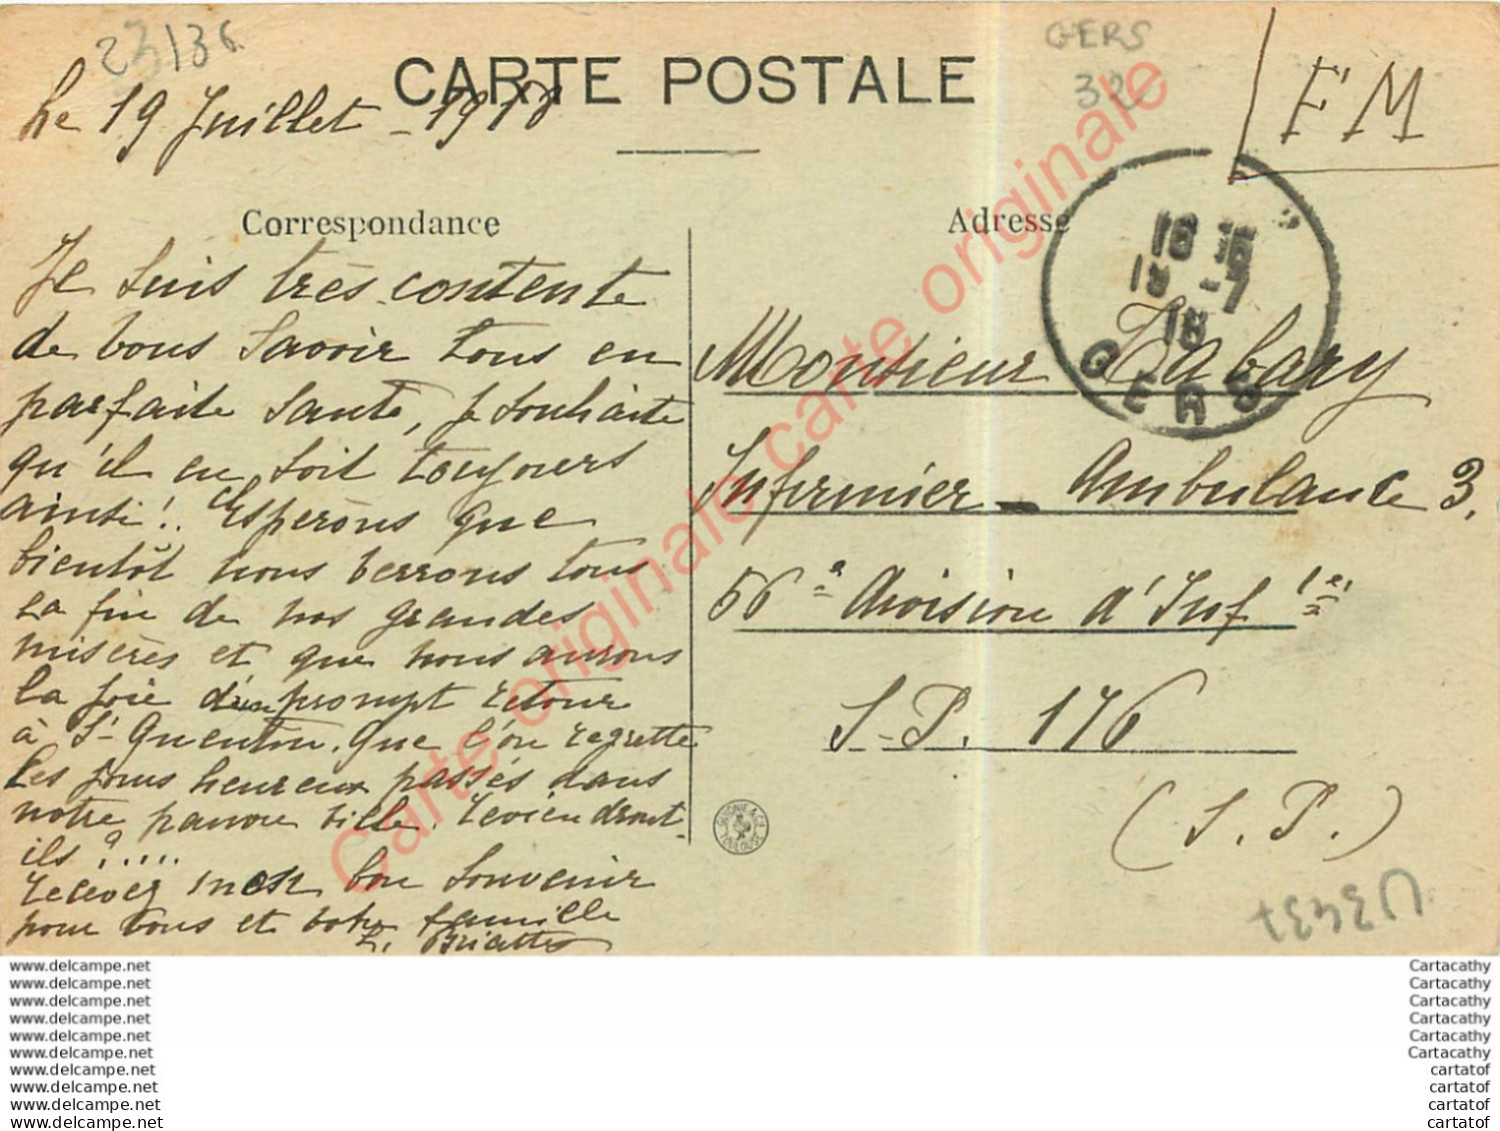 23136
GERS
32
CARTE POSTALE
FM
Le 19 Juillet - 1918
Correspondance
Adresse
16 15
19 -7
18
GERS
Je suis très contente
de vous savoir tous en
parfaite santé, je souhaite
qu'il en soit toujours
ainsi !.. Espérons que
bientôt nous verrons tous
la fin de nos grandes
misères et que nous aurons
la joie d'un prompt retour
à St Quentin. Que l'on regrette
les jours heureux passés dans
notre pauvre ville. Reviendront-
ils ?.....
Recevez mon bon souvenir
pour vous et votre famille
Monsieur Labary
Infirmier - Ambulance 3.
56e Division d'Infie
S.P. 176
(S.P.)
GUIONIE & Cie TOULOUSE
Carte originale carte originale carte originale
www.delcampe.net
www.delcampe.net
www.delcampe.net
www.delcampe.net
www.delcampe.net
www.delcampe.net
www.delcampe.net
www.delcampe.net
www.delcampe.net
www.delcampe.net
Cartacathy
Cartacathy
Cartacathy
Cartacathy
Cartacathy
Cartacathy
cartatof
cartatof
cartatof
cartatof